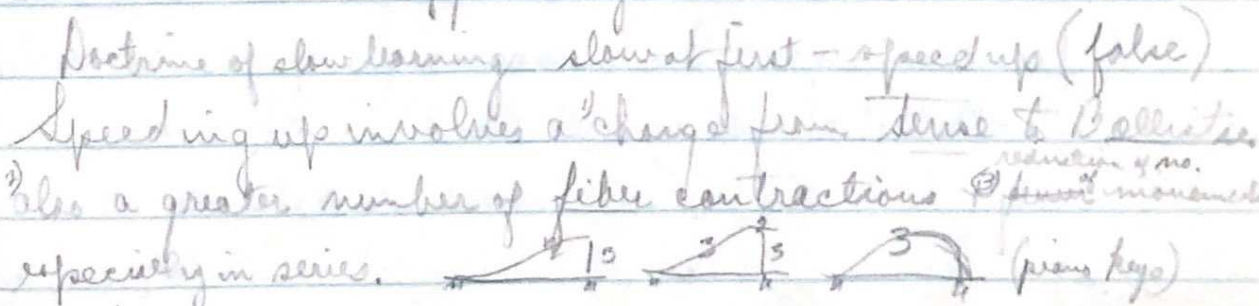 Doctrine of slow learning slow at first – speed up (false)
Speeding up involves a 1) change from tense to Ballistic
reduction of no.
2) also a greater number of fiber contractions 3) of movement
especially in series. 3 3 2 3 3 (piano keys)